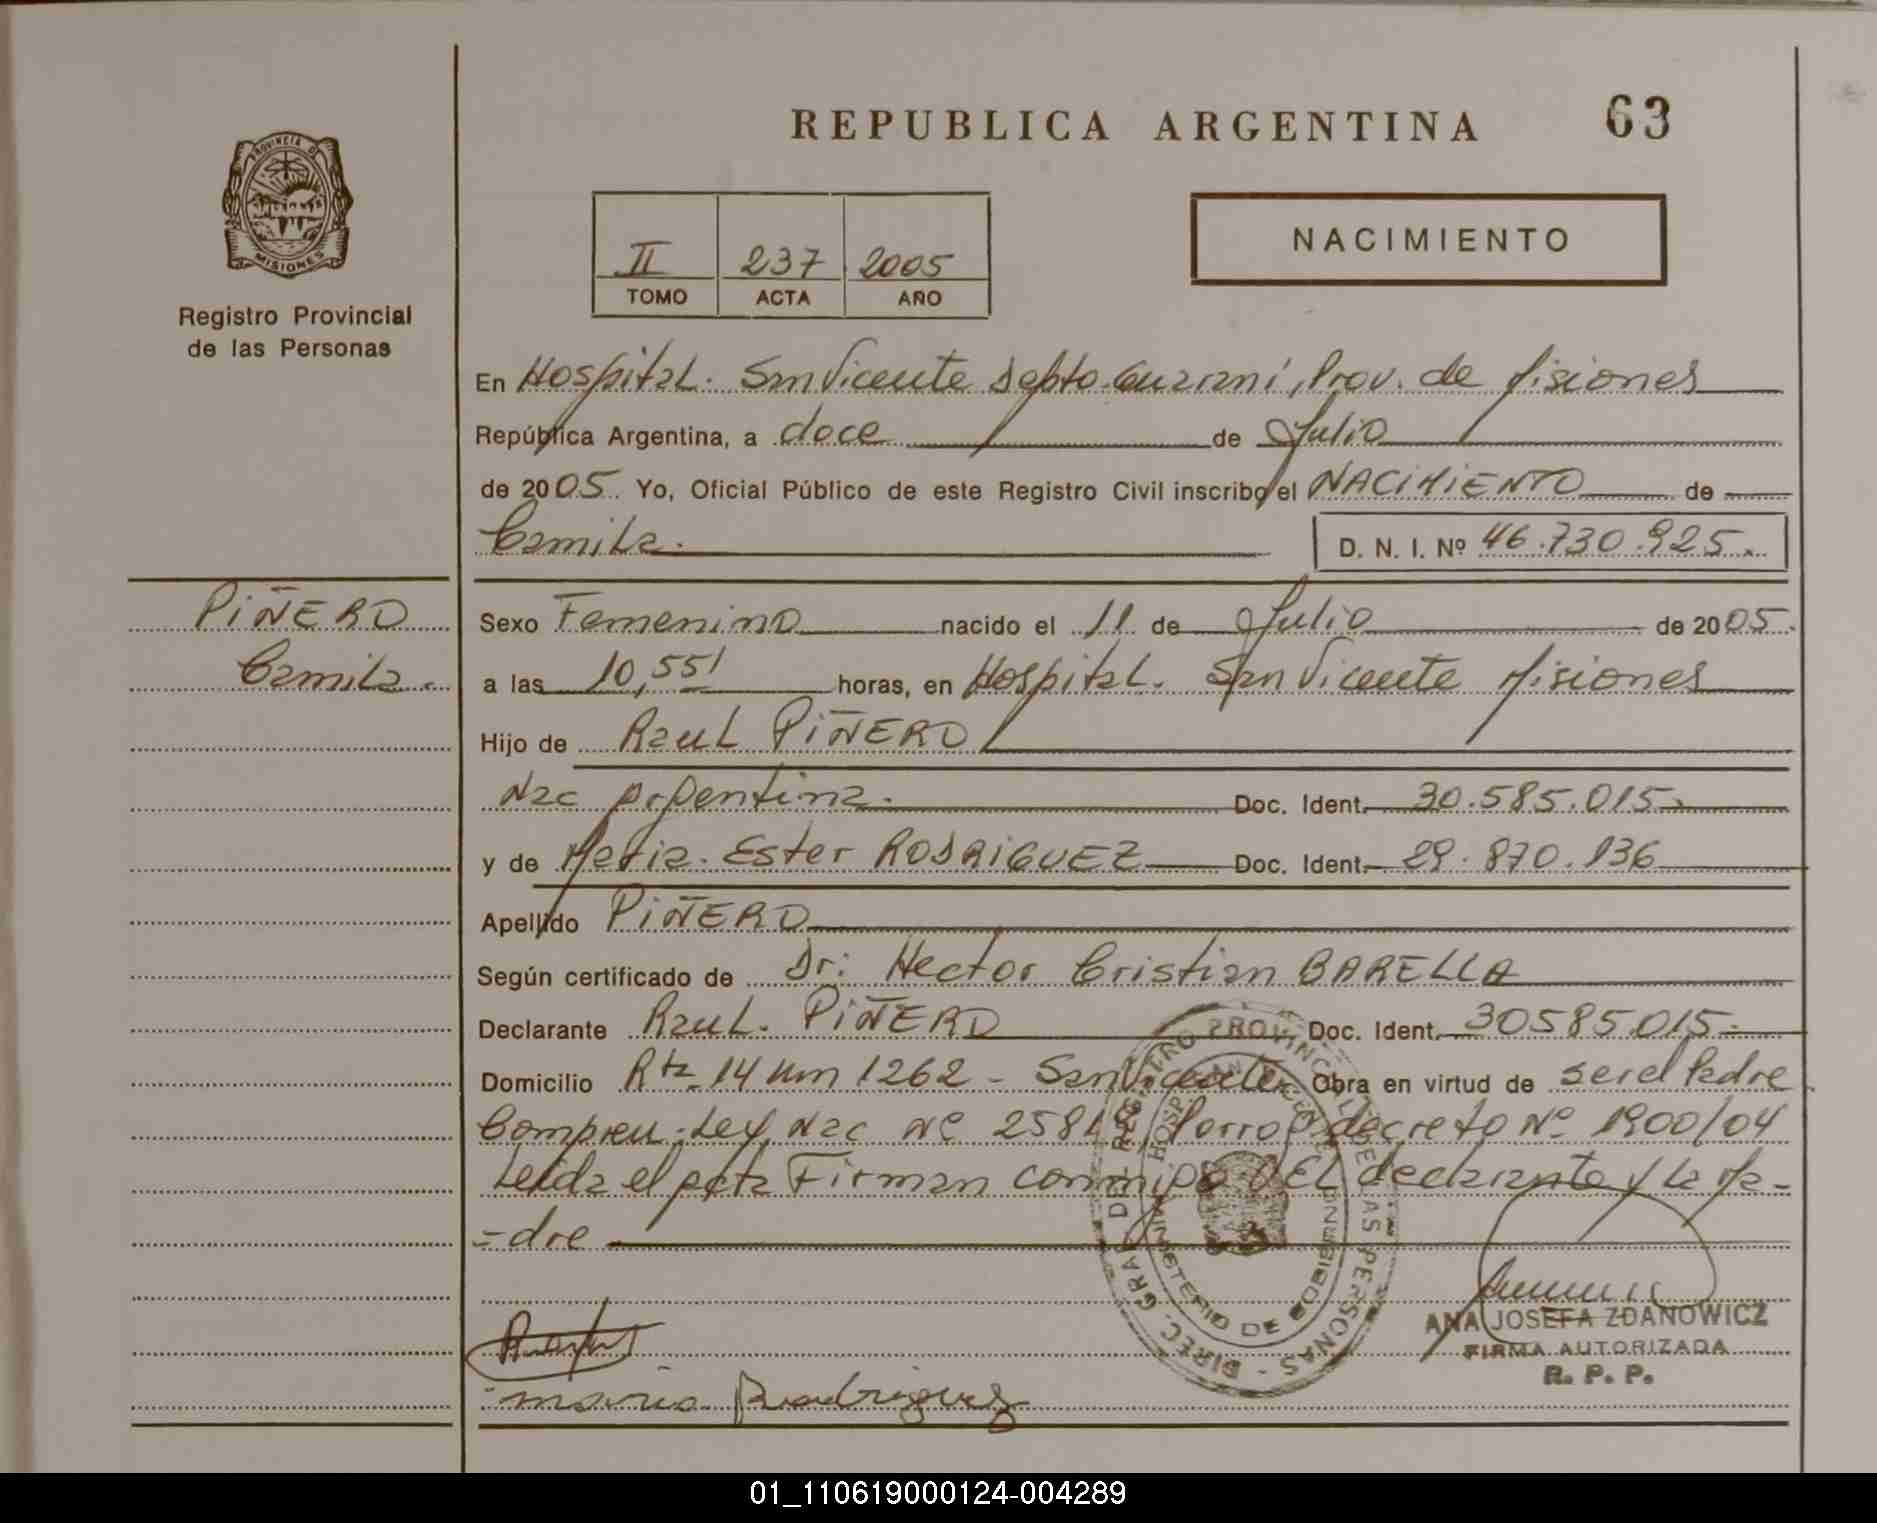 REPUBLICA ARGENTINA 63
PROVINCIA DE MISIONES
Registro Provincial
de las Personas
II 237 2005
TOMO ACTA AÑO
NACIMIENTO
En Hospital. San Vicente Depto. Guarani, Prov. de Misiones
República Argentina, a doce de Julio
de 2005. Yo, Oficial Público de este Registro Civil inscribo el NACIMIENTO de
Camila.
D. N. I. Nº 46.730.925.
PIÑERO
Camila.
Sexo Femenino nacido el 11 de Julio de 2005.
a las 10,55' horas, en Hospital. San Vicente Misiones
Hijo de Raul PIÑERO
Nac Argentina. Doc. Ident. 30.585.015.
y de Maria. Ester RODRIGUEZ Doc. Ident. 29.870.136
Apellido PIÑERO
Según certificado de Dr: Hector Cristian BARELLA
Declarante Raul. PIÑERO Doc. Ident. 30585015.
Domicilio Rta 14 Km 1262 - San Vicente Obra en virtud de ser el Padre
Ley Nac Nº decreto Nº 1900/04
Leida el acta Firman conmigo el declarante y la Ma-
-dre
DIREC. GRAL. DEL REGISTRO PROVINCIAL DE LAS PERSONAS -
MINISTERIO DE GOBIERNO
maria Rodriguez
ANA JOSEFA ZDANOWICZ
FIRMA AUTORIZADA
R. P. P.
01_110619000124-004289